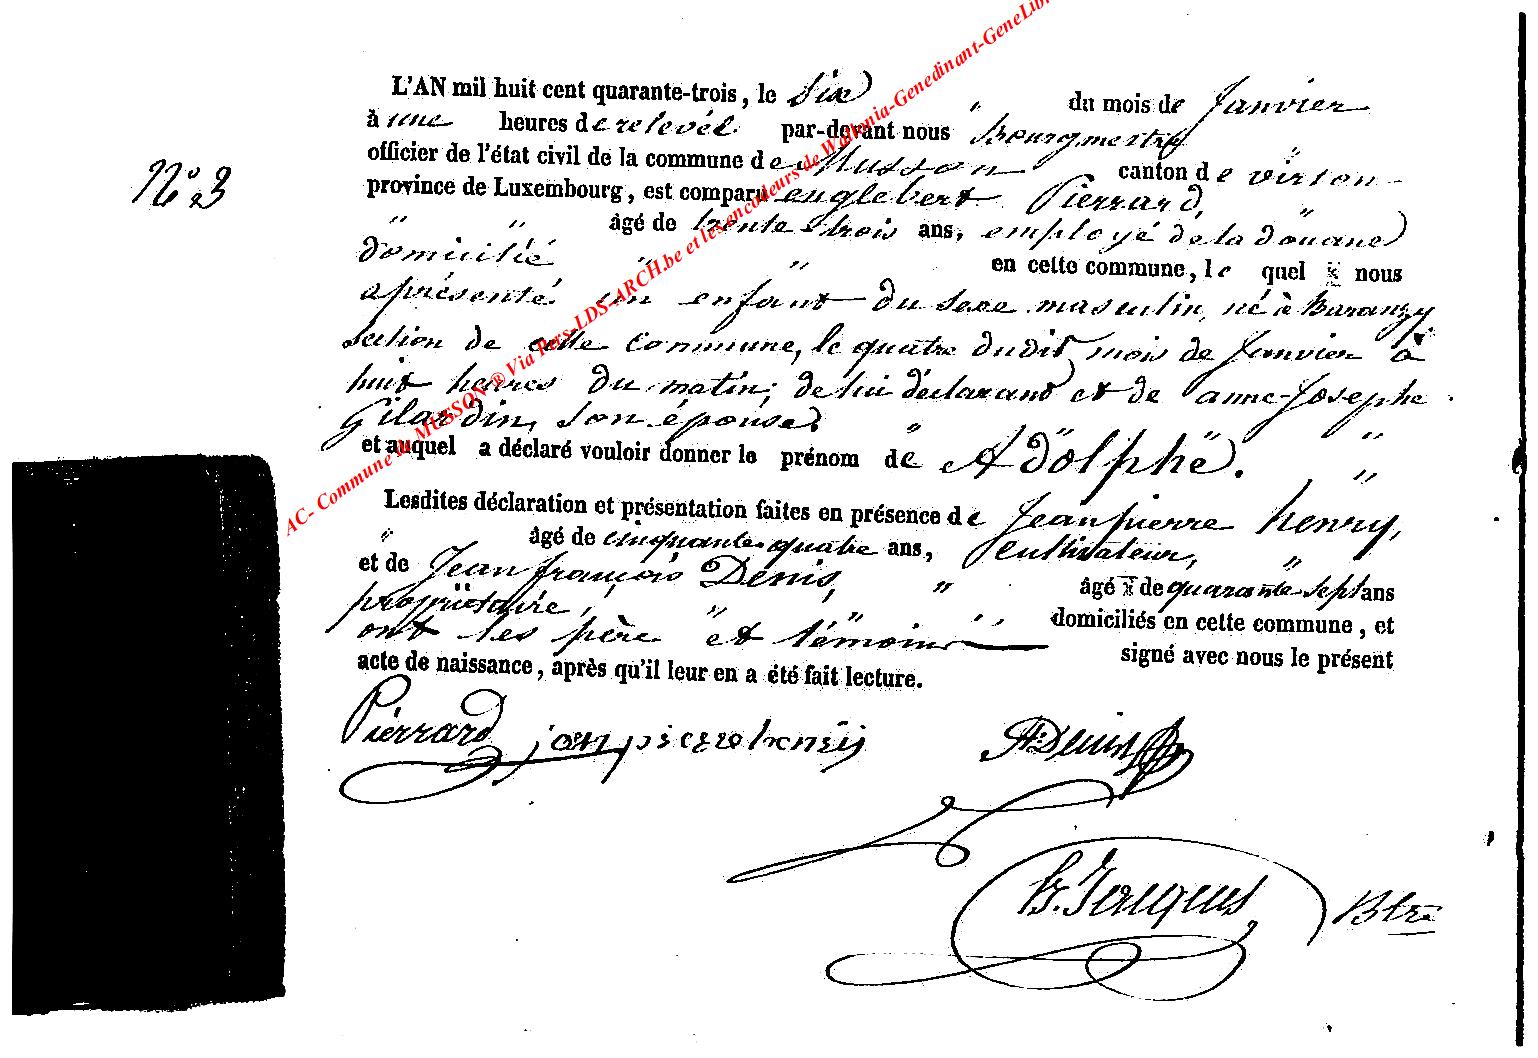 N.º 3
L'AN mil huit cent quarante-trois, le Six " du mois de Janvier
à une heures de relevée par-devant nous Bourgmestre
officier de l'état civil de la commune de Musson canton de virton
province de Luxembourg, est comparu englebert Pierrard,
" " âgé de trente-trois ans, employé de la douane
domicilié " " en cette commune, le quel nous
a présenté un enfant du sexe masculin, né à Baranzy
section de cette commune, le quatre dudit mois de Janvier à
huit heures du matin; de lui déclarant et de anne-Josephe
Gilardin, son épouse. " "
et auquel a déclaré vouloir donner le prénom de Adolphe. "
Lesdites déclaration et présentation faites en présence de Jean pierre henry,
" âgé de cinquante-quatre ans, cultivateur, "
et de Jean françois Denis, " âgé de quarante-sept ans
propriétaire, " " domiciliés en cette commune, et
ont les père et témoins signé avec nous le présent
acte de naissance, après qu'il leur en a été fait lecture.
Pierrard jean pierre henry Denis
B. Jacques Btre
AC- Commune de MUSSON ® Via Pers-LDS-ARCH.be et les encodeurs de Wallonia-Genedinant-GeneLib